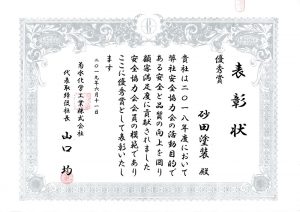 表彰状
優秀賞
砂田塗装 殿
貴社は二〇一八年度において
弊社安全協力会の活動目的で
ある安全と品質の向上を図り
顧客満足度に貢献されました
安全協力会会員の模範であり
ここに優秀賞として表彰いたし
ます
二〇一九年六月十一日
菊水化学工業株式会社
代表取締役社長 山口 均